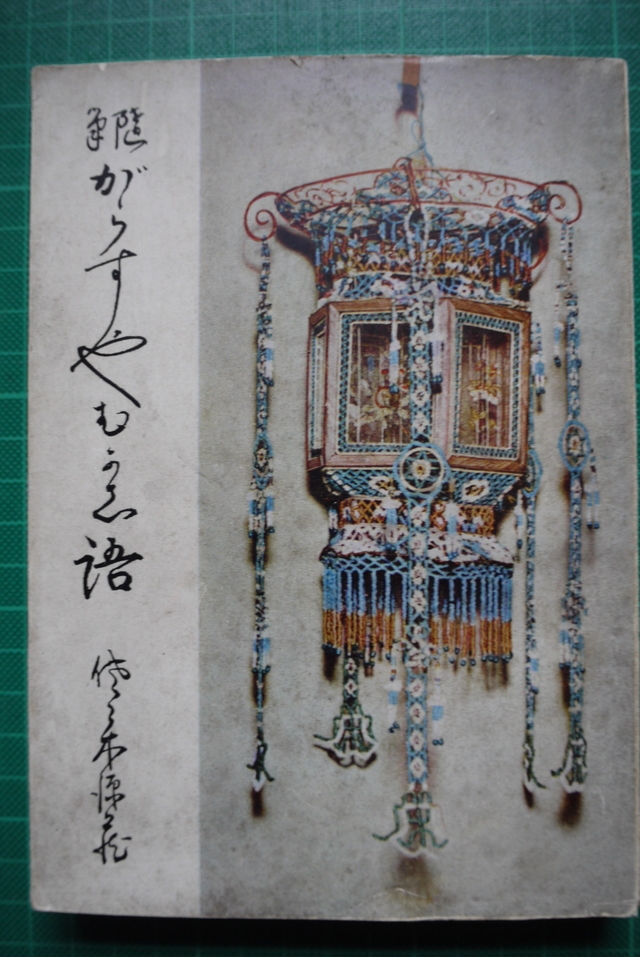 隨筆
がらすやむかし語
佐々木源蔵